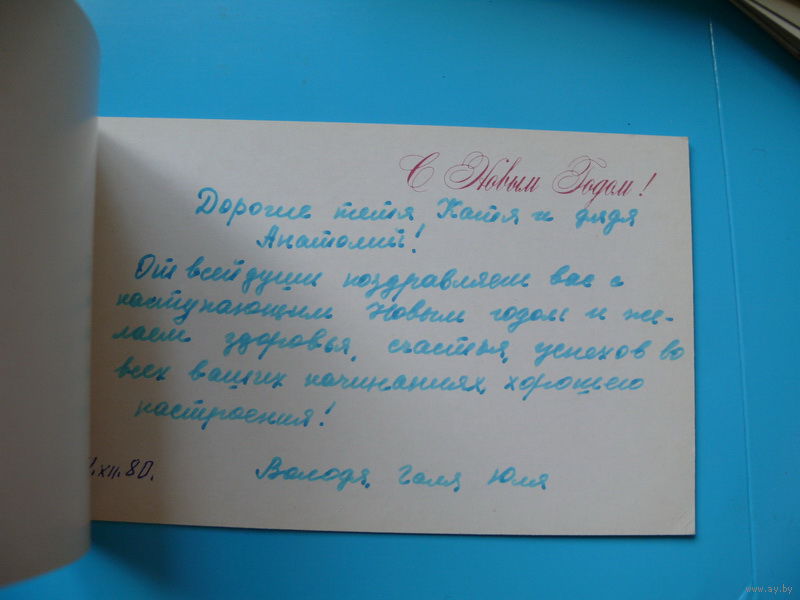 С Новым Годом!
Дорогие тетя Катя и дядя
Анатолий!
От всей души поздравляем вас с
наступающим Новым годом и же-
лаем здоровья, счастья, успехов во
всех ваших начинаниях, хорошего
настроения!
.XII.80.
Володя, Галя, Юля
www.ay.by